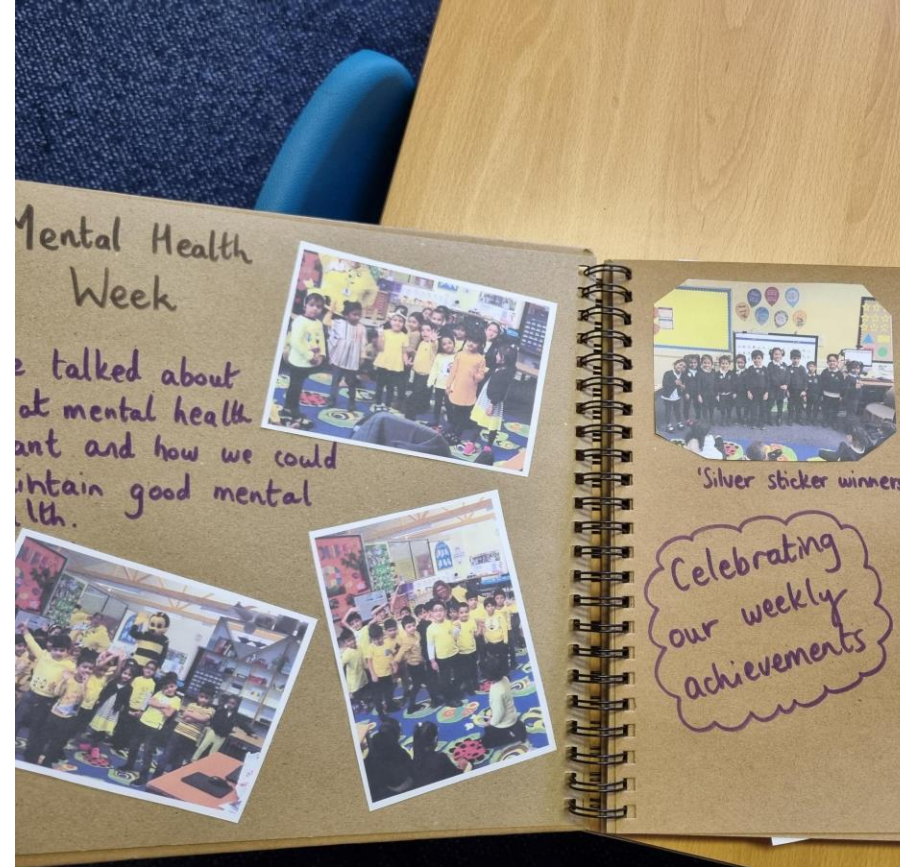 Mental Health
Week
e talked about
at mental health
ant and how we could
intain good mental
lth.
'Silver sticker winners
Celebrating
our weekly
achievements